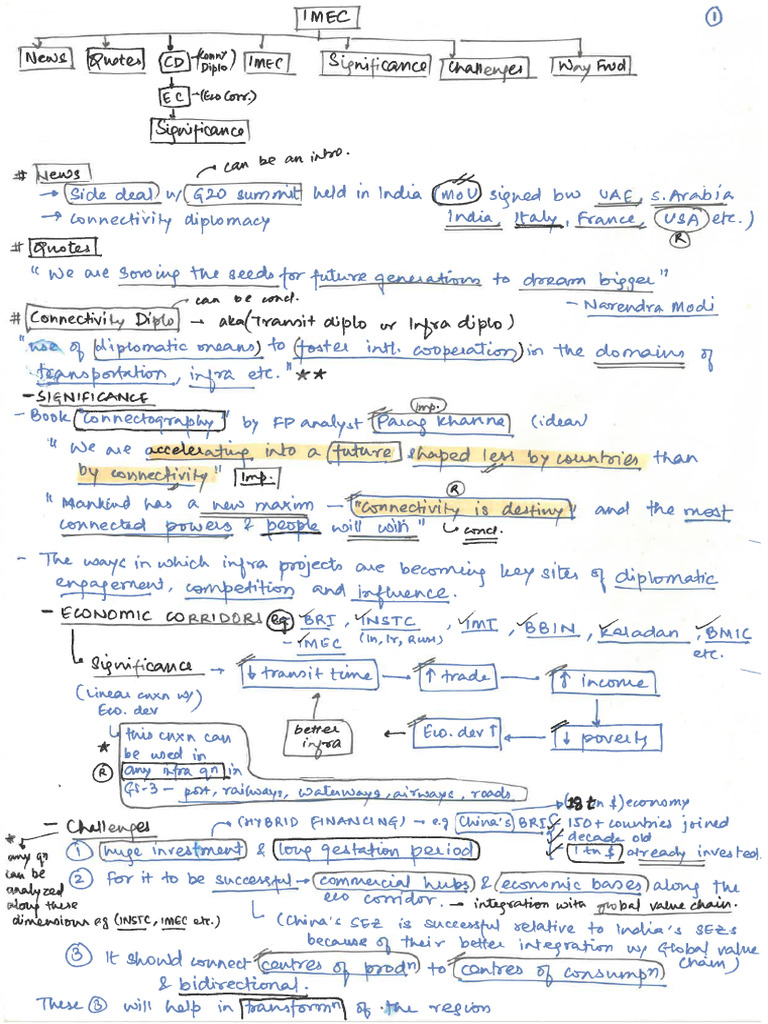 IMEC
1
News Quotes CD → (Conn. Diplo) IMEC Significance Challenges Way Fwd
EC → (Eco Corr.)
Significance
can be an intro.
# News
→ Side deal w/ G20 summit held in India (MoU signed bw UAE, S. Arabia
→ connectivity diplomacy India, Italy, France, USA etc.)
R
# Quotes
"We are sowing the seeds for future generations to dream bigger"
- Narendra Modi
can be concl.
# Connectivity Diplo → aka (Transit diplo or Infra diplo)
"use of diplomatic means to foster intl. cooperation in the domains of
transportation, infra etc." **
- SIGNIFICANCE
imp.
- Book "Connectography" by FP analyst Parag Khanna (idea)
"We are accelerating into a future shaped less by countries than
by connectivity" Imp.
R
"Mankind has a new maxim - "Connectivity is destiny" and the most
connected powers & people will win" concl.
- The ways in which infra projects are becoming key sites of diplomatic
engagement, competition and influence.
- ECONOMIC CORRIDORS eg BRI, INSTC, IMT, BBIN, Kaladan, BMIC
- IMEC (In, Ir, Rus) etc.
Significance → ↓ transit time → ↑ trade → ↑ income
(Linear cnxn w/
Eco. dev
better infra ← Eco. dev ↑ ← ↓ poverty
this cnxn can
* be used in
R any infra qn in
GS-3 - port, railways, waterways, airways, roads
(18 tn $) economy
- Challenges (HYBRID FINANCING) → e.g China's BRI 150+ countries joined
decade old
① huge investment & long gestation period 1 tn $ already invested.
* any qn can be analyzed along these dimensions eg (INSTC, IMEC etc.)
② For it to be successful → commercial hubs & economic bases along the
eco corridor. → integration with global value chain.
(China's SEZ is successful relative to India's SEZs
because of their better integration w/ Global value
chain)
③ It should connect centres of prodn to centres of consumpn
& bidirectional.
These ③ will help in transformn of the region